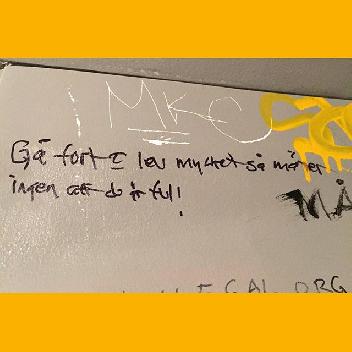 MKC
Gå fort & le mycket så märker
ingen att du är ful!
MÅ
EGAL.ORG